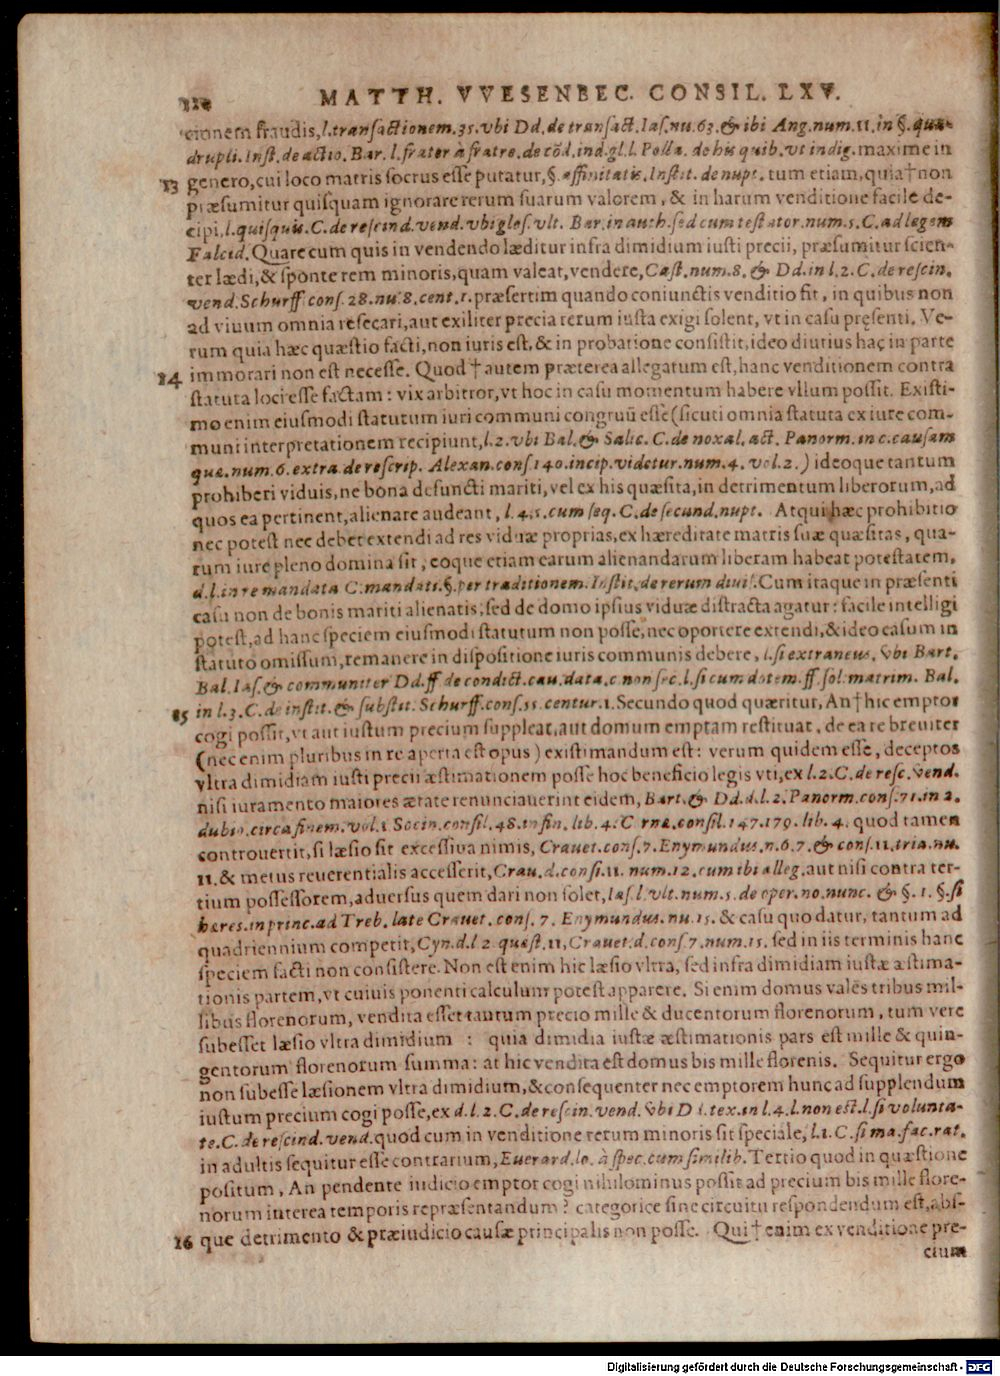 MATTH. VVESENBEC. CONSIL. LXV.
cionem fraudis, l. transactionem. 35. vbi Dd. de transact. Ias. nu. 63. & ibi Ang. num. 11. in §. qua-
drupli. Inst. de actio. Bar. l. frater à fratre. de cōd. ind. gl. l. Polla. de his quib. vt indig. maxime in
13 genero, cui loco matris socrus esse putatur, §. affinitatis. Instit. de nupt. tum etiam, quia † non
præsumitur quisquam ignorare rerum suarum valorem, & in harum venditione facile de-
cipi, l. quisquis. C. de rescind. vend. vbi glos. vlt. Bar. in auth. sed cum testator. num. 5. C. ad legem
Falcid. Quare cum quis in vendendo læditur infra dimidium iusti precii, præsumitur scien-
ter lædi, & sponte rem minoris, quam valeat, vendere, Cast. num. 8. & Dd. in l. 2. C. de rescin.
vend. Schurff. cons. 28. nu. 8. cent. 1. præsertim quando coniunctis venditio fit, in quibus non
ad viuum omnia resecari, aut exiliter precia rerum iusta exigi solent, vt in casu pręsenti. Ve-
rum quia hæc quæstio facti, non iuris est, & in probatione consistit, ideo diutius hac in parte
14 immorari non est necesse. Quod † autem præterea allegatum est, hanc venditionem contra
statuta loci esse factam: vix arbitror, vt hoc in casu momentum habere vllum possit. Existi-
mo enim eiusmodi statutum iuri communi congruū esse (sicuti omnia statuta ex iure com-
muni interpretationem recipiunt, l. 2. vbi Bal. & Salic. C. de noxal. act. Panorm. in c. causam
quæ. num. 6. extra de rescrip. Alexan. cons. 140. incip. videtur. num. 4. vol. 2.) ideoque tantum
prohiberi viduis, ne bona defuncti mariti, vel ex his quæsita, in detrimentum liberorum, ad
quos ea pertinent, alienare audeant, l. 4. 5. cum seq. C. de secund. nupt. Atqui hæc prohibitio
nec potest nec debet extendi ad res viduæ proprias, ex hæreditate matris suæ quæsitas, qua-
rum iure pleno domina sit, eoque etiam earum alienandarum liberam habeat potestatem,
d. l. in re mandata C. mandati. §. per traditionem. Instit. de rerum diuis. Cum itaque in præsenti
casu non de bonis mariti alienatis; sed de domo ipsius viduæ distracta agatur: facile intelligi
potest, ad hanc speciem eiusmodi statutum non posse, nec oportere extendi, & ideo casum in
statuto omissum, remanere in dispositione iuris communis debere, l. si extraneus. vbi Bart.
Bal. Ias. & communiter Dd. ff. de condict. cau. data. c. non sec. l. si cum dotem. ff. sol. matrim. Bal.
15 in l. 3. C. de instit. & substit. Schurff. cons. 55. centur. 1. Secundo quod quæritur, An † hic emptor
cogi possit, vt aut iustum precium suppleat, aut domum emptam restituat, de ea re breuiter
(nec enim pluribus in re aperta est opus) existimandum est: verum quidem esse, deceptos
vltra dimidiam iusti precii æstimationem posse hoc beneficio legis vti, ex l. 2. C. de resc. vend.
nisi iuramento maiores ætate renunciauerint eidem, Bart. & Dd. d. l. 2. Panorm. cons. 71. in 2.
dubio. circa finem. vol. 1. Socin. consil. 48. in fin. lib. 4. Corne. consil. 147. 179. lib. 4. quod tamen
controuertit, si læsio sit excessiua nimis, Crauet. cons. 7. Enymundus. n. 6. 7. & cons. 11. tria. nu.
11. & metus reuerentialis accesserit, Crau. d. consi. 11. num. 12. cum ibi alleg. aut nisi contra ter-
tium possessorem, aduersus quem dari non solet, Ias. l. vlt. num. 5. de oper. no. nunc. & §. 1. §. si
heres. in princ. ad Treb. late Crauet. cons. 7. Enymundus. nu. 15. & casu quo datur, tantum ad
quadriennium competit, Cyn. d. l. 2. quæst. 11, Crauet. d. cons. 7. num. 15. sed in iis terminis hanc
speciem facti non consistere. Non est enim hic læsio vltra, sed infra dimidiam iustæ æstima-
tionis partem, vt cuiuis ponenti calculum potest apparere. Si enim domus valēs tribus mil-
libus florenorum, vendita esset tantum precio mille & ducentorum florenorum, tum vere
subesset læsio vltra dimidium : quia dimidia iustæ æstimationis pars est mille & quin-
gentorum florenorum summa: at hic vendita est domus bis mille florenis. Sequitur ergo
non subesse læsionem vltra dimidium, & consequenter nec emptorem hunc ad supplendum
iustum precium cogi posse, ex d. l. 2. C. de rescin. vend. vbi D i. tex. in l. 4. l. non est. l. si volunta-
te. C. de rescind. vend. quod cum in venditione rerum minoris sit speciale, l. 1. C. si ma. fac. rat.
in adultis sequitur esse contrarium, Euerard. lo. à spec. cum similib. Tertio quod in quæstione
positum, An pendente iudicio emptor cogi nihilominus possit ad precium bis mille flore-
norum interea temporis repræsentandum? categorice sine circuitu respondendum est, abs-
16 que detrimento & præiudicio causæ principalis non posse. Qui † enim ex venditione pre-
cium
Digitalisierung gefördert durch die Deutsche Forschungsgemeinschaft - DFG